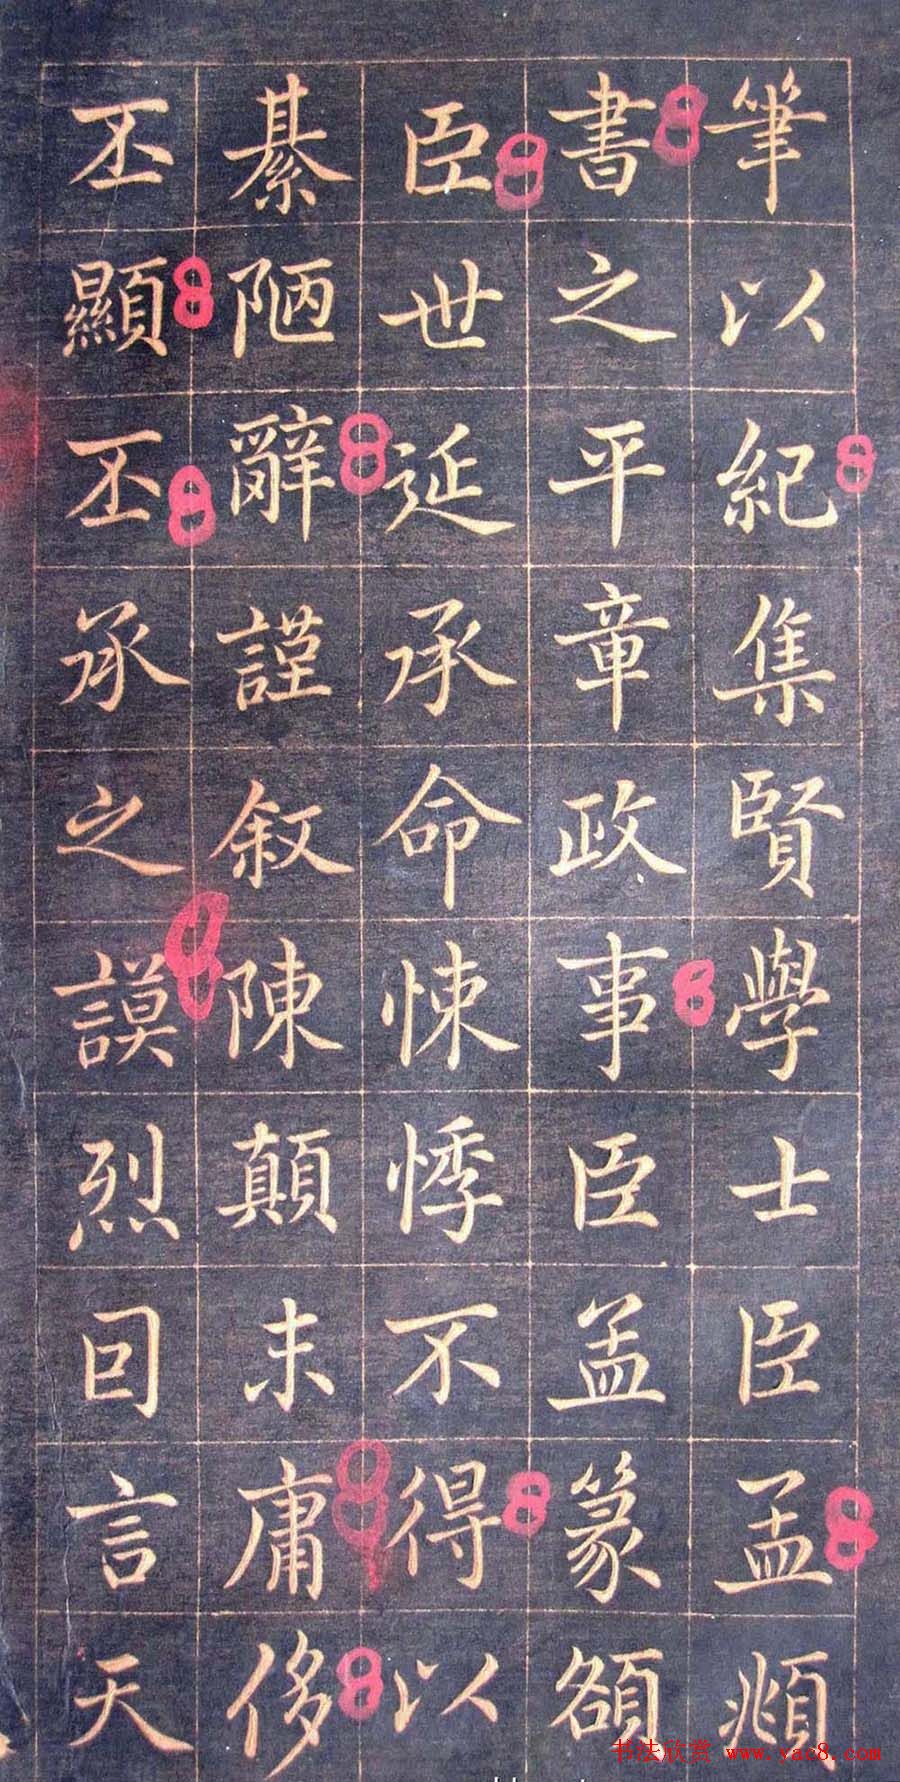 筆以紀集賢學士臣孟頫
書之平章政事臣孟篆頟
臣世延承命悚悸不得以
綦陋辭謹叙陳顛末庸侈
丕顯丕承之謨烈囙言天
书法欣赏 www.yac8.com